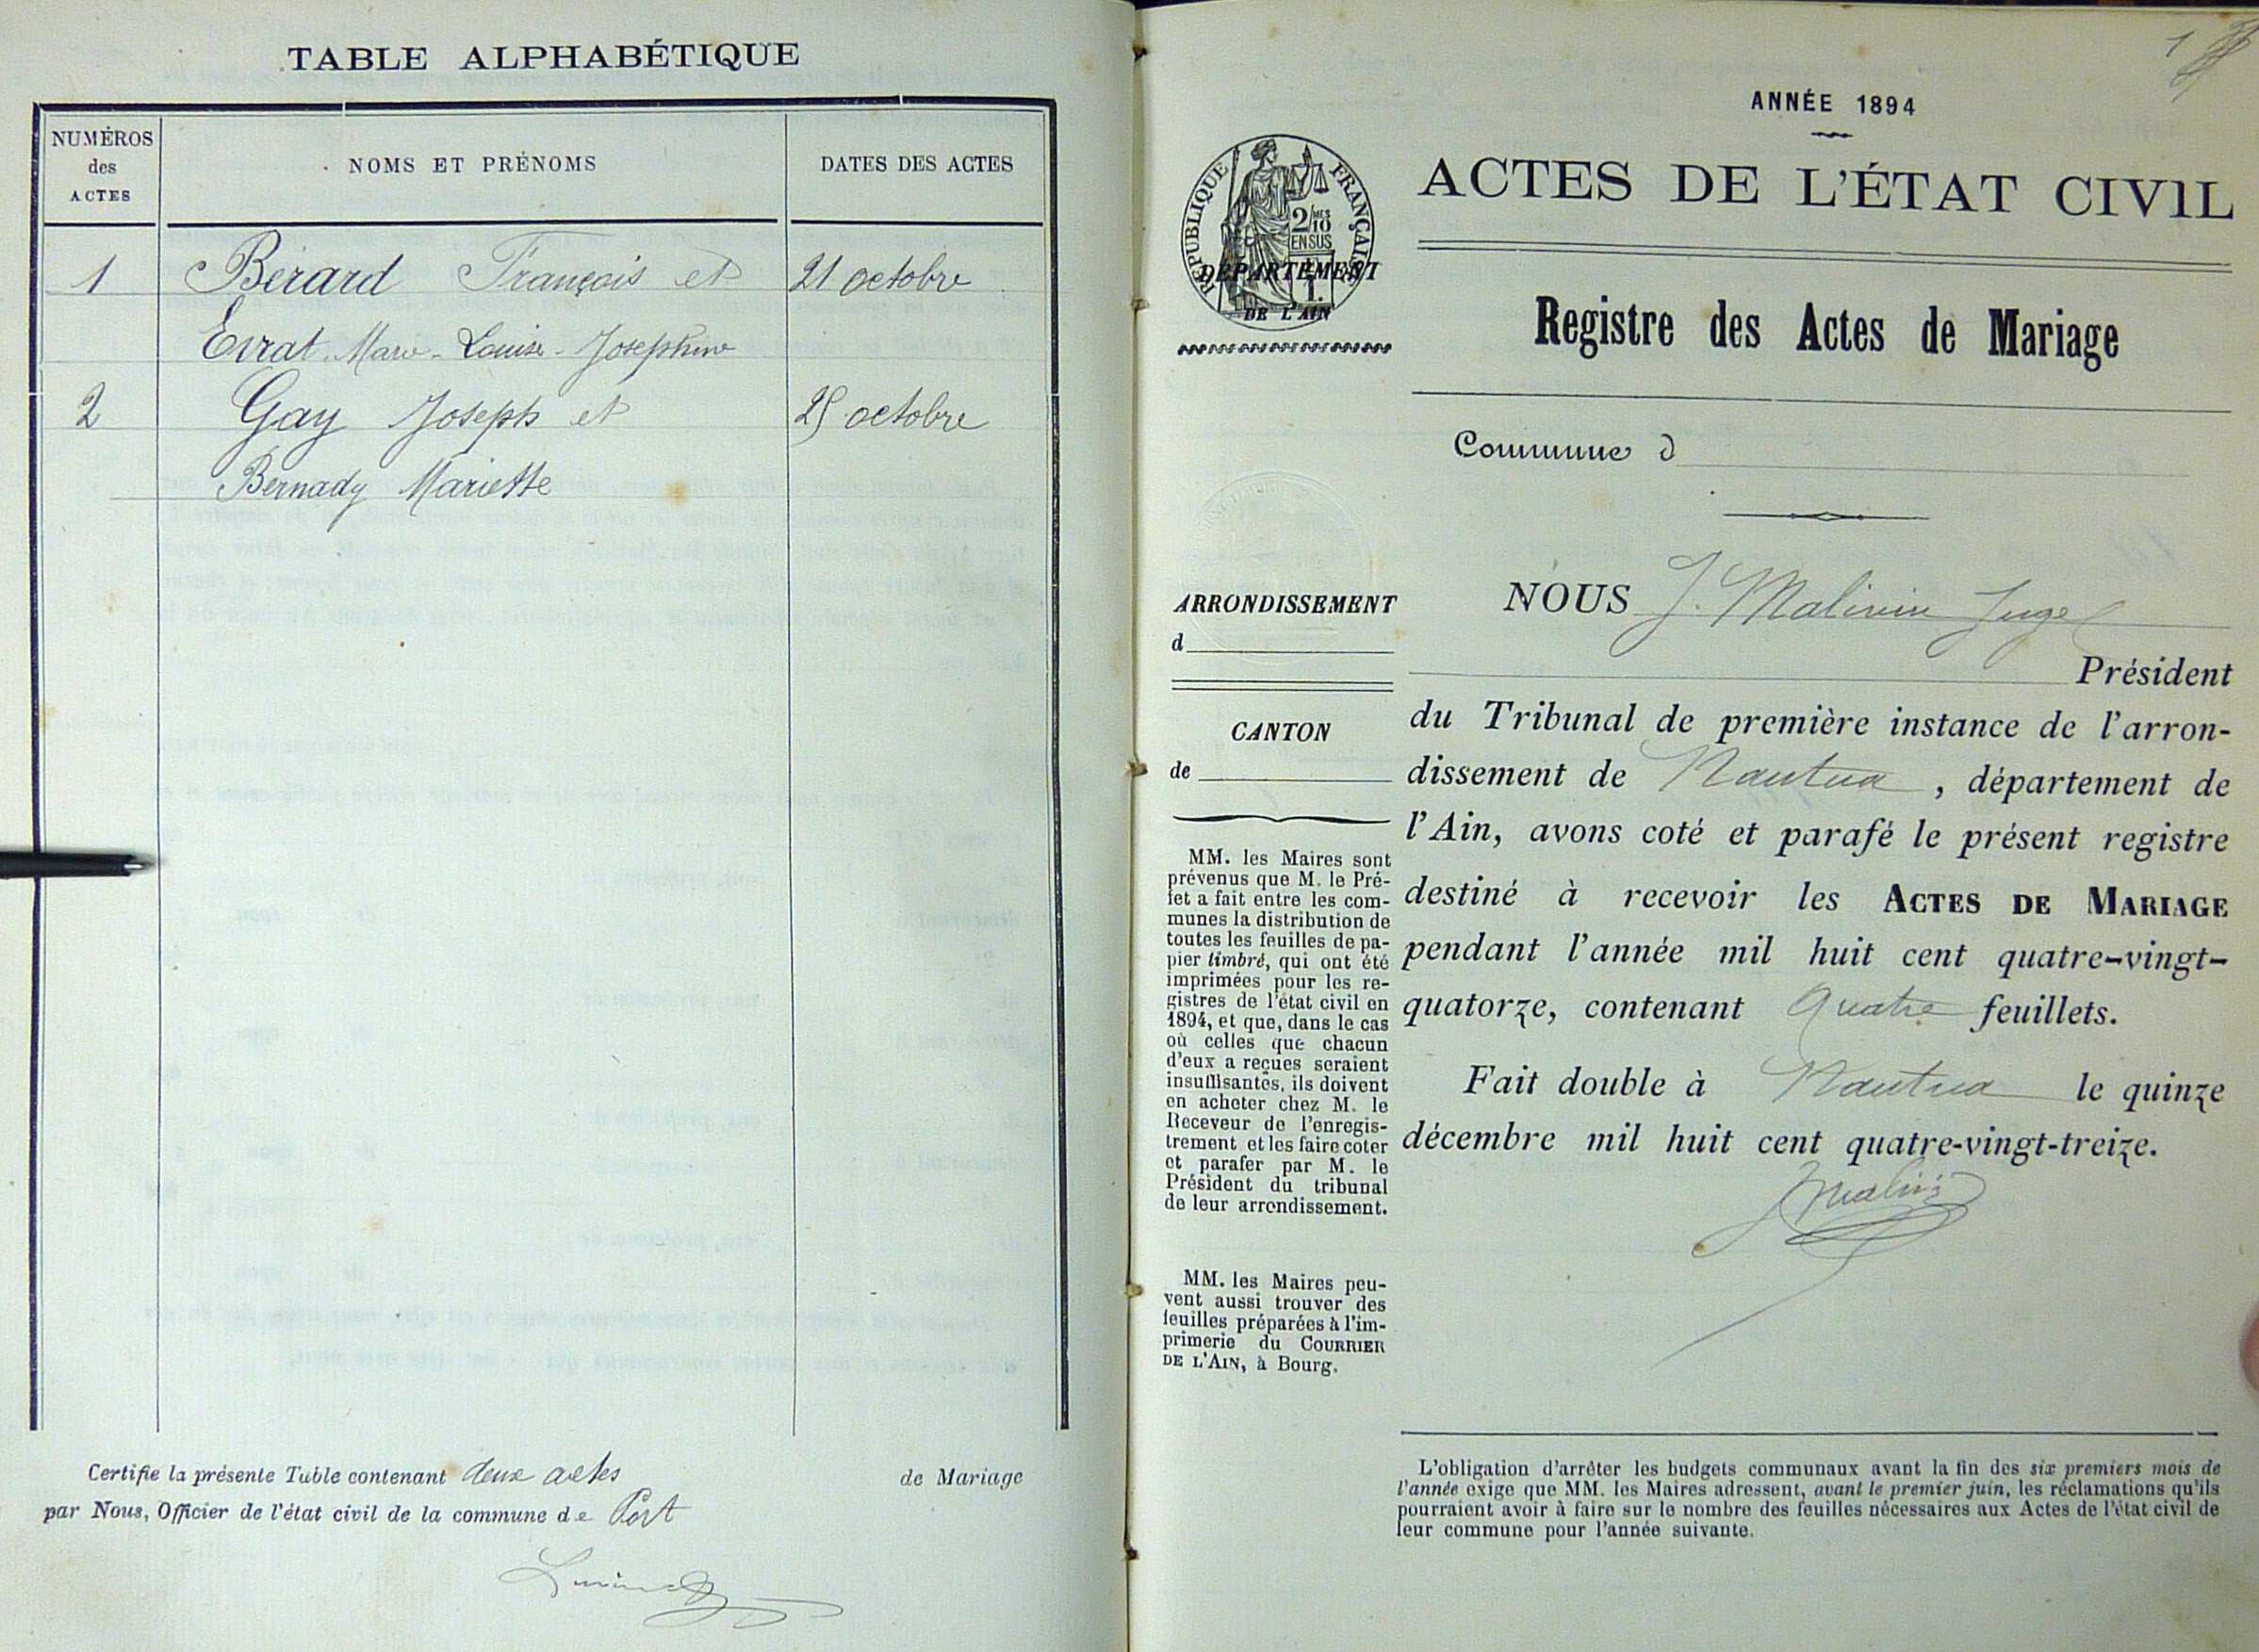 TABLE ALPHABÉTIQUE
NUMÉROS
des
ACTES
NOMS ET PRÉNOMS
DATES DES ACTES
1 Bérard François et 21 octobre
Evrat Marie-Louise-Joséphine
2 Gay Joseph et 25 octobre
Bernady Mariette
Certifie la présente Table contenant deux actes de Mariage
par Nous, Officier de l'état civil de la commune de Port
1
ANNÉE 1894
RÉPUBLIQUE FRANÇAISE
2/10 MES
EN SUS
DÉPARTEMENT
DE L'AIN
ACTES DE L'ÉTAT CIVIL
Registre des Actes de Mariage
Commune d
ARRONDISSEMENT
d
CANTON
de
MM. les Maires sont
prévenus que M. le Pré-
fet a fait entre les com-
munes la distribution de
toutes les feuilles de pa-
pier timbré, qui ont été
imprimées pour les re-
gistres de l'état civil en
1894, et que, dans le cas
où celles que chacun
d'eux a reçues seraient
insuffisantes, ils doivent
en acheter chez M. le
Receveur de l'enregis-
trement et les faire coter
et parafer par M. le
Président du tribunal
de leur arrondissement.
MM. les Maires peu-
vent aussi trouver des
feuilles préparées à l'im-
primerie du COURRIER
DE L'AIN, à Bourg.
NOUS J. Malivin Juge
Président
du Tribunal de première instance de l'arron-
dissement de Nantua, département de
l'Ain, avons coté et parafé le présent registre
destiné à recevoir les ACTES DE MARIAGE
pendant l'année mil huit cent quatre-vingt-
quatorze, contenant Quatre feuillets.
Fait double à Nantua le quinze
décembre mil huit cent quatre-vingt-treize.
L'obligation d'arrêter les budgets communaux avant la fin des six premiers mois de
l'année exige que MM. les Maires adressent, avant le premier juin, les réclamations qu'ils
pourraient avoir à faire sur le nombre des feuilles nécessaires aux Actes de l'état civil de
leur commune pour l'année suivante.